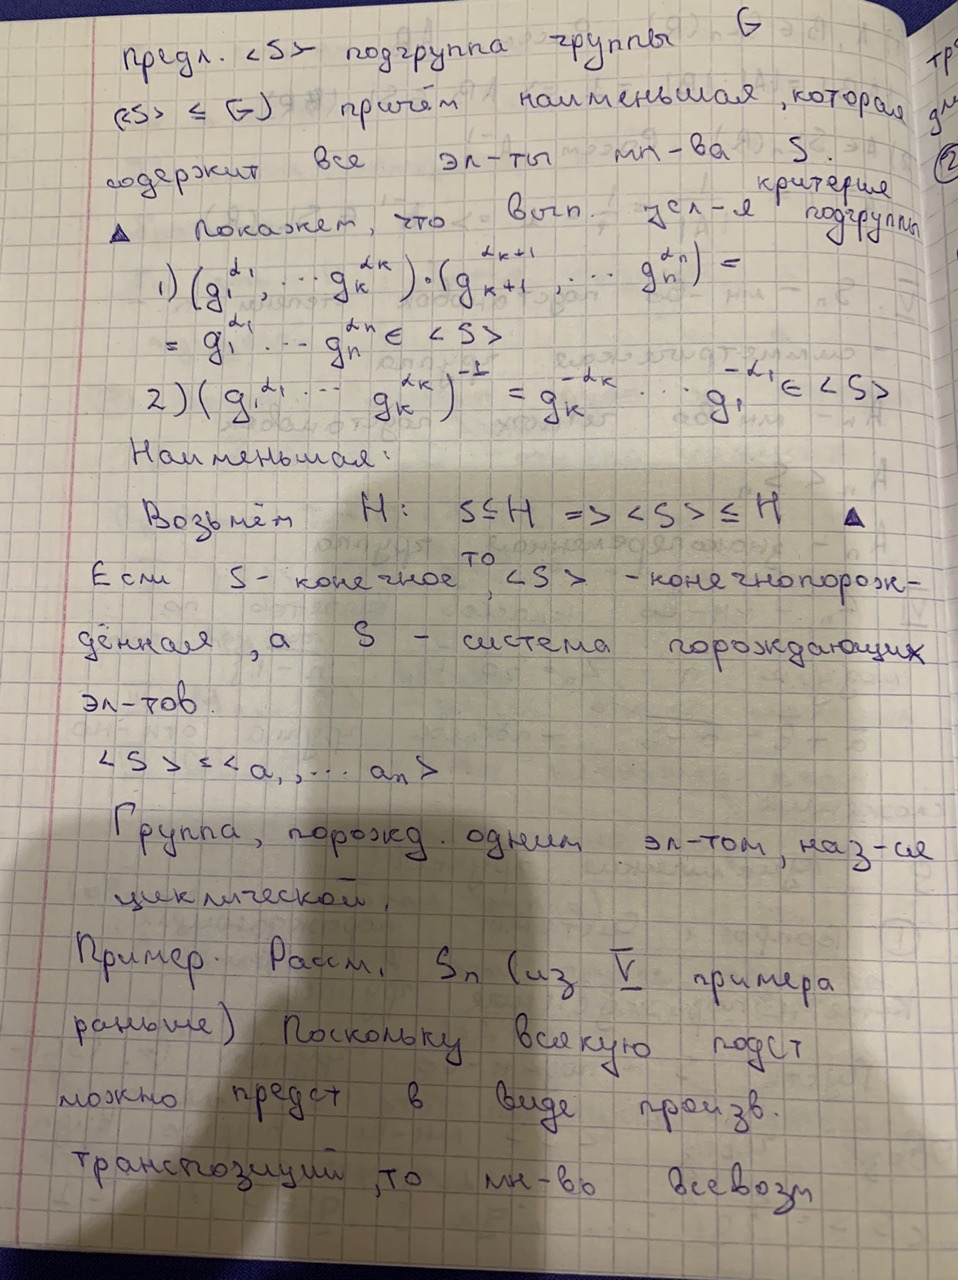 Предл. <S> подгруппа группы G
(<S> ≤ G) причём наименьшая, которая
содержит все эл-ты мн-ва S.
▲ Покажем, что вып. усл-я критерия подгруппы
1) (g₁^α₁, ... gₖ^αₖ)·(gₖ₊₁^αₖ₊₁, ... gₙ^αₙ) =
= g₁^α₁ ... gₙ^αₙ ∈ <S>
2) (g₁^α₁ ... gₖ^αₖ)^-1 = gₖ^-αₖ ... g₁^-α₁ ∈ <S>
Наименьшая:
Возьмём H: S ⊆ H => <S> ≤ H ▲
Если S - конечное, то <S> - конечнопорож-
дённая, а S - система порождающих
эл-тов.
<S> = <a₁, ... aₙ>
Группа, порожд. одним эл-том, наз-ся
циклической.
Пример. Рассм. Sₙ (из V примера
раньше) Поскольку всякую подст
можно предст в виде произв.
транспозиций, то мн-во всевозм
тр
дл
2